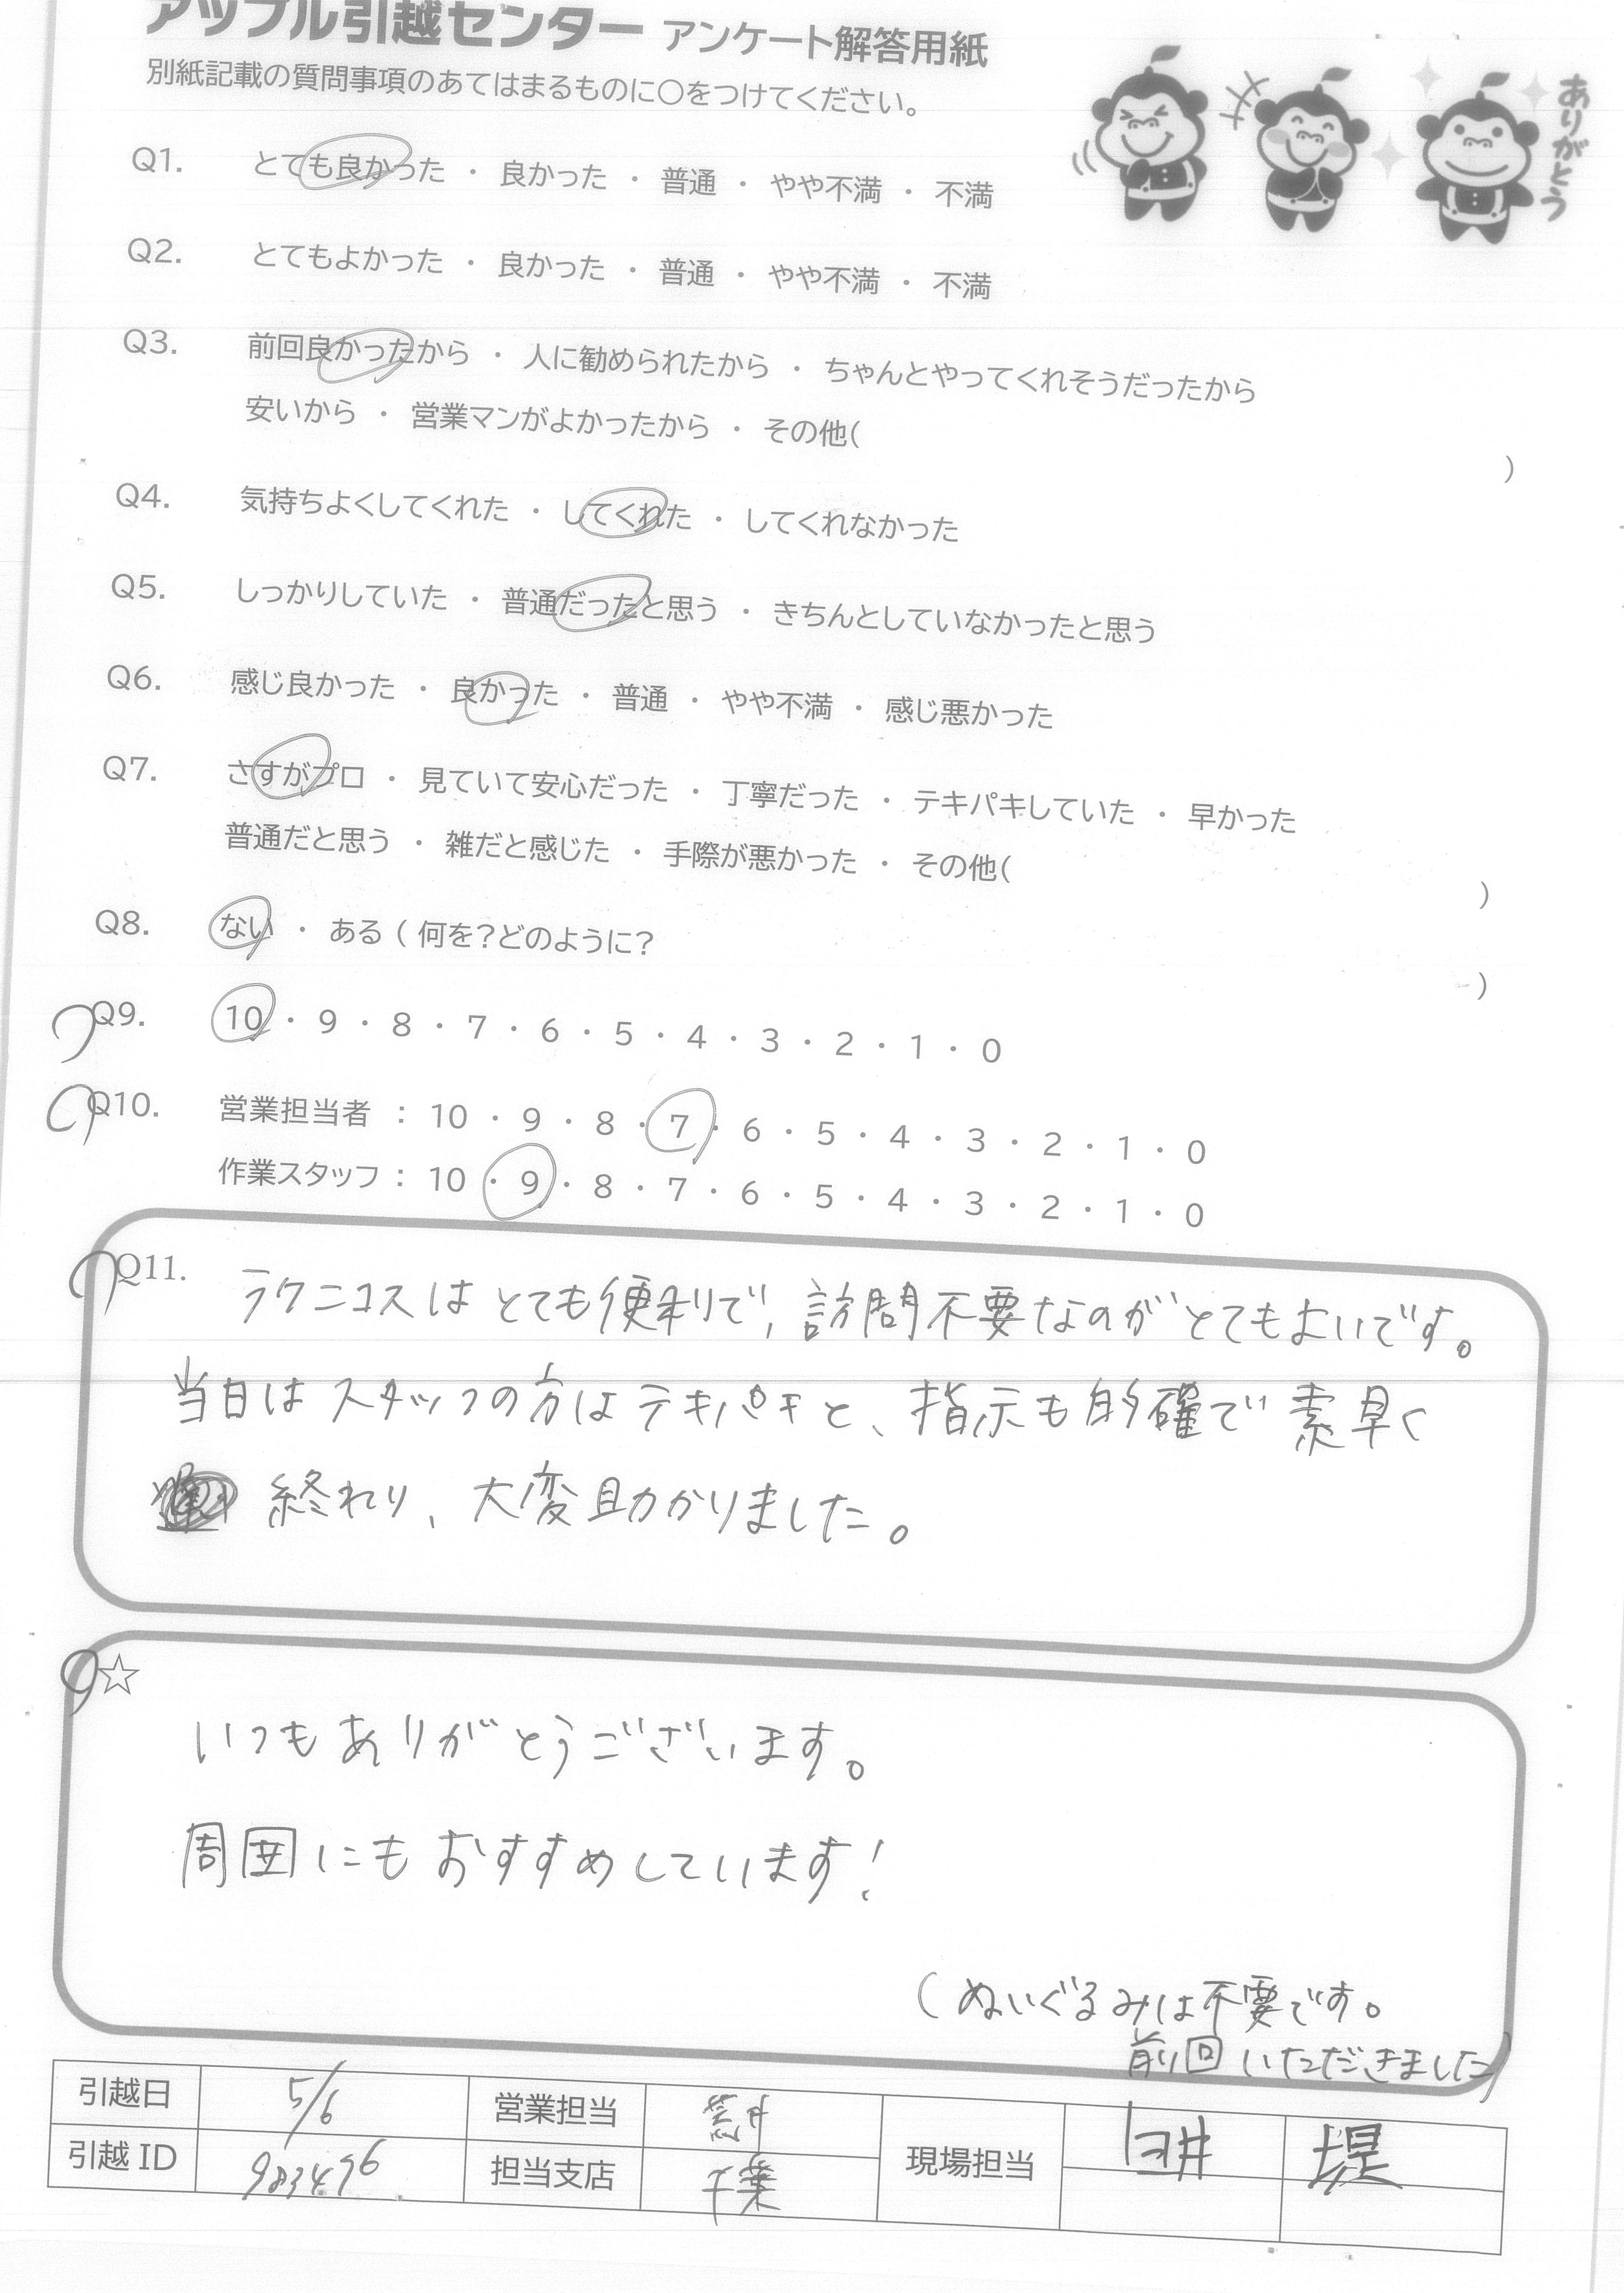 アップル引越センター アンケート解答用紙
別紙記載の質問事項のあてはまるものに○をつけてください。
ありがとう
Q1. とても良かった ・ 良かった ・ 普通 ・ やや不満 ・ 不満
Q2. とてもよかった ・ 良かった ・ 普通 ・ やや不満 ・ 不満
Q3. 前回良かったから ・ 人に勧められたから ・ ちゃんとやってくれそうだったから
安いから ・ 営業マンがよかったから ・ その他( )
Q4. 気持ちよくしてくれた ・ してくれた ・ してくれなかった
Q5. しっかりしていた ・ 普通だったと思う ・ きちんとしていなかったと思う
Q6. 感じ良かった ・ 良かった ・ 普通 ・ やや不満 ・ 感じ悪かった
Q7. さすがプロ ・ 見ていて安心だった ・ 丁寧だった ・ テキパキしていた ・ 早かった
普通だと思う ・ 雑だと感じた ・ 手際が悪かった ・ その他( )
Q8. ない ・ ある ( 何を?どのように? )
Q9. 10 ・ 9 ・ 8 ・ 7 ・ 6 ・ 5 ・ 4 ・ 3 ・ 2 ・ 1 ・ 0
Q10. 営業担当者 : 10 ・ 9 ・ 8 ・ 7 ・ 6 ・ 5 ・ 4 ・ 3 ・ 2 ・ 1 ・ 0
作業スタッフ : 10 ・ 9 ・ 8 ・ 7 ・ 6 ・ 5 ・ 4 ・ 3 ・ 2 ・ 1 ・ 0
Q11. ラクニコスはとても便利で、訪問不要なのがとてもよいです。
当日はスタッフの方はテキパキと、指示も的確で素早く
終わり、大変助かりました。
☆
いつもありがとうございます。
周囲にもおすすめしています!
(ぬいぐるみは不要です。
前回いただきました)
引越日 5/6 営業担当 荒井 現場担当 臼井 堤
引越ID 983496 担当支店 千葉